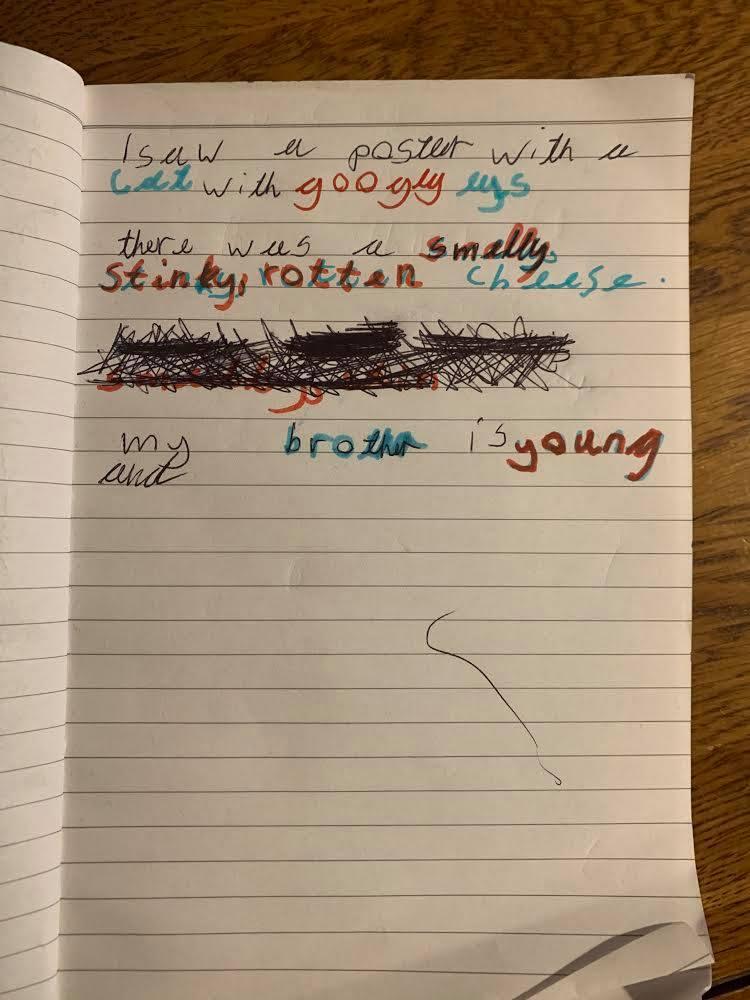 I saw a poster with a
cat with googly eys
there was a smelly,
stinky, rotten cheese.
my brother is young
and